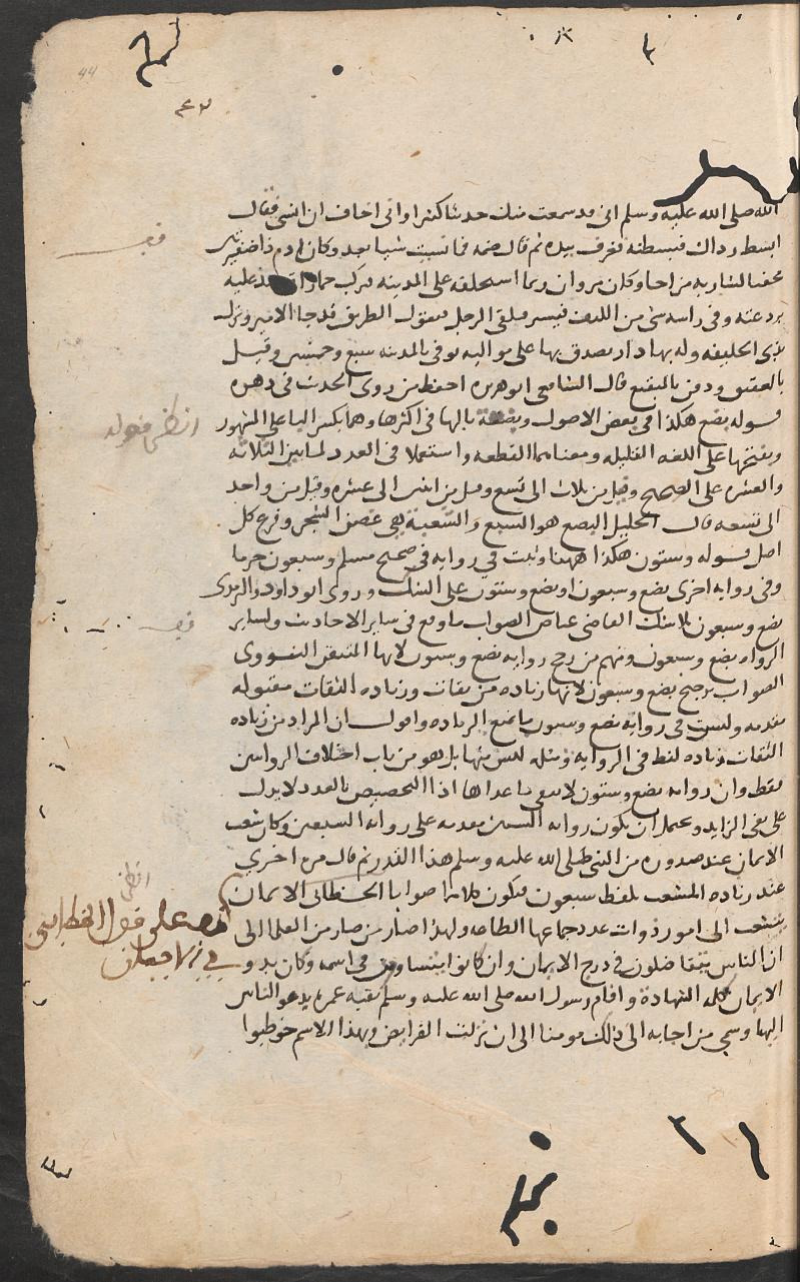 الله صلى الله عليه وسلم انى قد سمعت منك حديثا كثيرا وانى اخاف ان انسى فقال
ابسط رداك فبسطته فغرف بيده ثم قال ضمه فما نسيت شيا بعد وكان ادم ذا ضفيرتين
محفيا لشاربه مزاحا وكان مروان ربما استخلفه على المدينه فيركب حمارا قد شد عليه
بردعته وفى راسه شى من الليف فيسير فيلقى الرجل فيقول الطريق قد جا الامير ونزل
بذى الحليفه وله بها دار تصدق بها على مواليه توفى بالمدينه سبع وخمسين وقيل
بالعقيق ودفن بالبقيع قال الشافعى ابو هريره احفظ من روى الحديث فى دهره
قوله بضع هكذا فى بعض الاصول وبضعة بالها فى اكثرها وهما بكسر البا على المشهور
وبفتحها على اللغه القليله ومعناهما القطعه واستعملا فى العدد لما بين الثلاثه
والعشره على الصحيح وقيل من ثلاث الى تسع وقيل من اثنين الى عشره وقيل من واحد
الى تسعه قال الخليل البضع هو السبع والشعبة هى غصن الشجر وفرع كل
اصل قوله وستون هكذا ههنا وثبت في روايه فى صحيح مسلم وسبعون جزما
وفى روايه اخرى بضع وسبعون او بضع وستون على الشك وروى ابو داود والترمدى
بضع وسبعون بلا شك القاضى عياض الصواب ما وقع فى ساير الاحاديث ولساير
الرواه بضع وسبعون ومنهم من رجح روايه بضع وستون لانها المتيقن النووى
الصواب ترجيح بضع وسبعون لانها زياده من ثقات وزياده الثقات مقبوله
مقدمه وليس فى روايه بضع وستون ما يمنع الزياده واقول ان المراد من زياده
الثقات زياده لفظ فى الروايه ومثله ليس منها بل هو من باب اختلاف الروايتين
فقط وان روايه بضع وستون لا ينفى ما عداها اذ التخصيص بالعدد لا يدل
على نفى الزايد ويحتمل ان يكون روايه الستين مقدمه على روايه السبعين وكان شعب
الايمان عند صدوره من النبى صلى الله عليه وسلم هذا القدر ثم قال مره اخري
عند زياده الشعب بلفظ سبعون فيكون كلاهما صوابا الخطابى الايمان
يتشعب الى امور ذوات عدد جماعها الطاعه ولهذا صار من صار من العلما الى
ان الناس يتفاضلون فى درج الايمان وان كانوا متساوين فى اسمه وكان بدو
الايمان كلمه الشهادة واقام رسول الله صلى الله عليه وسلم بقيه عمره يدعو الناس
اليها وسمي من اجابه الى ذلك مومنا الى ان نزلت الفرايض وبهذا الاسم خوطبوا
قف
انظر قوله
قف
انظر
قف على قول الخطابى